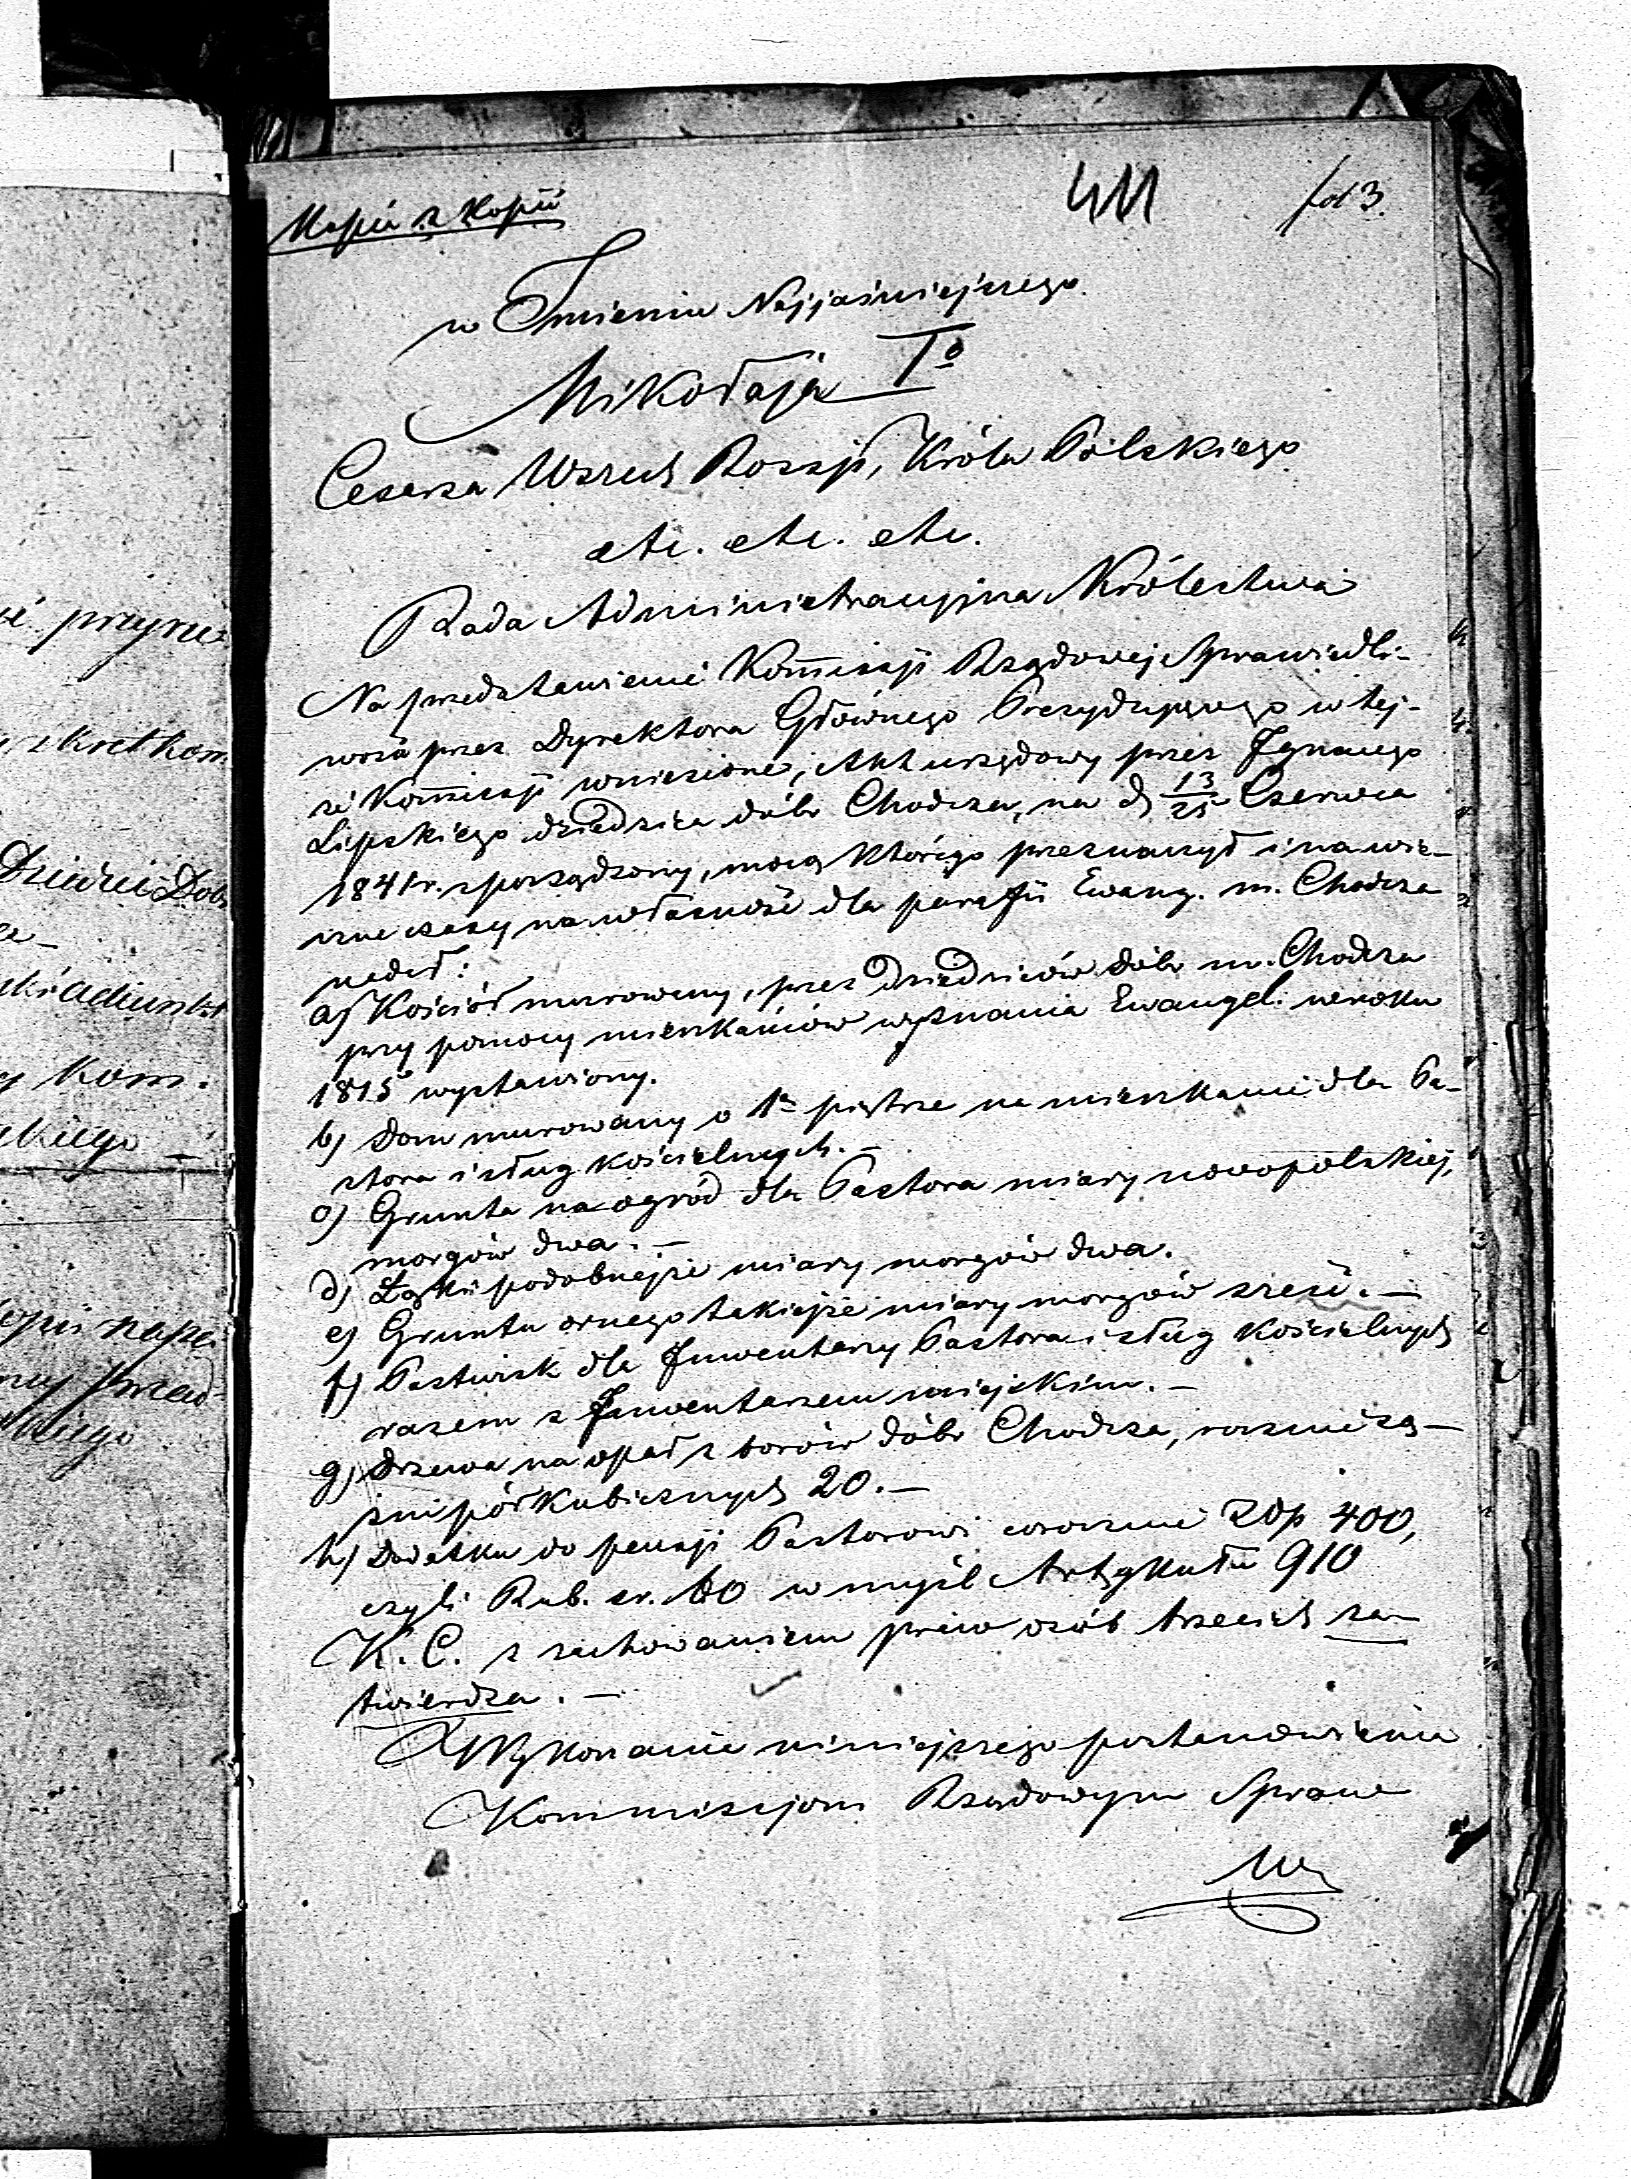 Kopia z Kopii
411 fol 3.
w Imieniu Najjaśniejszego
Mikołaja Iº
Cesarza Wszech Rossji, Króla Polskiego
etc. etc. etc.
Rada Administracyjna Królestwa
Na przedstawienie Kom̄issji Rządowej Sprawiedli-
wości przez Dyrektora Głównego Prezydującego w tej-
że Kom̄issji wniesione, Akt urzędowy przez Ignacego
Lipskiego dziedzica dóbr Chodcza, na d. 13/25 Czerwca
1841 r. sporządzony, mocą którego przeznaczył i na wie-
czne czasy na własność dla parafii Ewang. m. Chodcza
nadał:
a) Kościół murowany, przez Dziedziców dóbr m. Chodcza
przy pomocy mieszkańców wyznania Ewangel. w roku
1815 wystawiony.
b) Dom murowany o 1m piętrze na mieszkanie dla Pa-
stora i sług kościelnych. —
c) Gruntu na ogród dla Pastora miary nowopolskiej,
morgów dwa. —
d) Łąki podobnejże miary morgów dwa.
e) Gruntu ornego takiejże miary morgów sześć. —
f) Pastwisk dla Inwentarzy Pastora i sług Kościelnych
razem z Inwentarzem miejskim. —
g) Drzewa na opał z borów dóbr Chodcza, rocznie są-
żni półkubicznych 20. —
h) Dodatku do pensji Pastorowi corocznie Złp 400,
czyli Rub. sr. 60 w myśl Artykułu 910
K. C. z zachowaniem praw osób trzecich za-
twierdza. —
Wykonanie niniejszego postanowienia
Kommissjom Rządowym Spraw